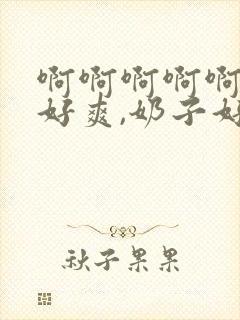 啊啊啊啊啊
好爽,奶子好
秋子果果